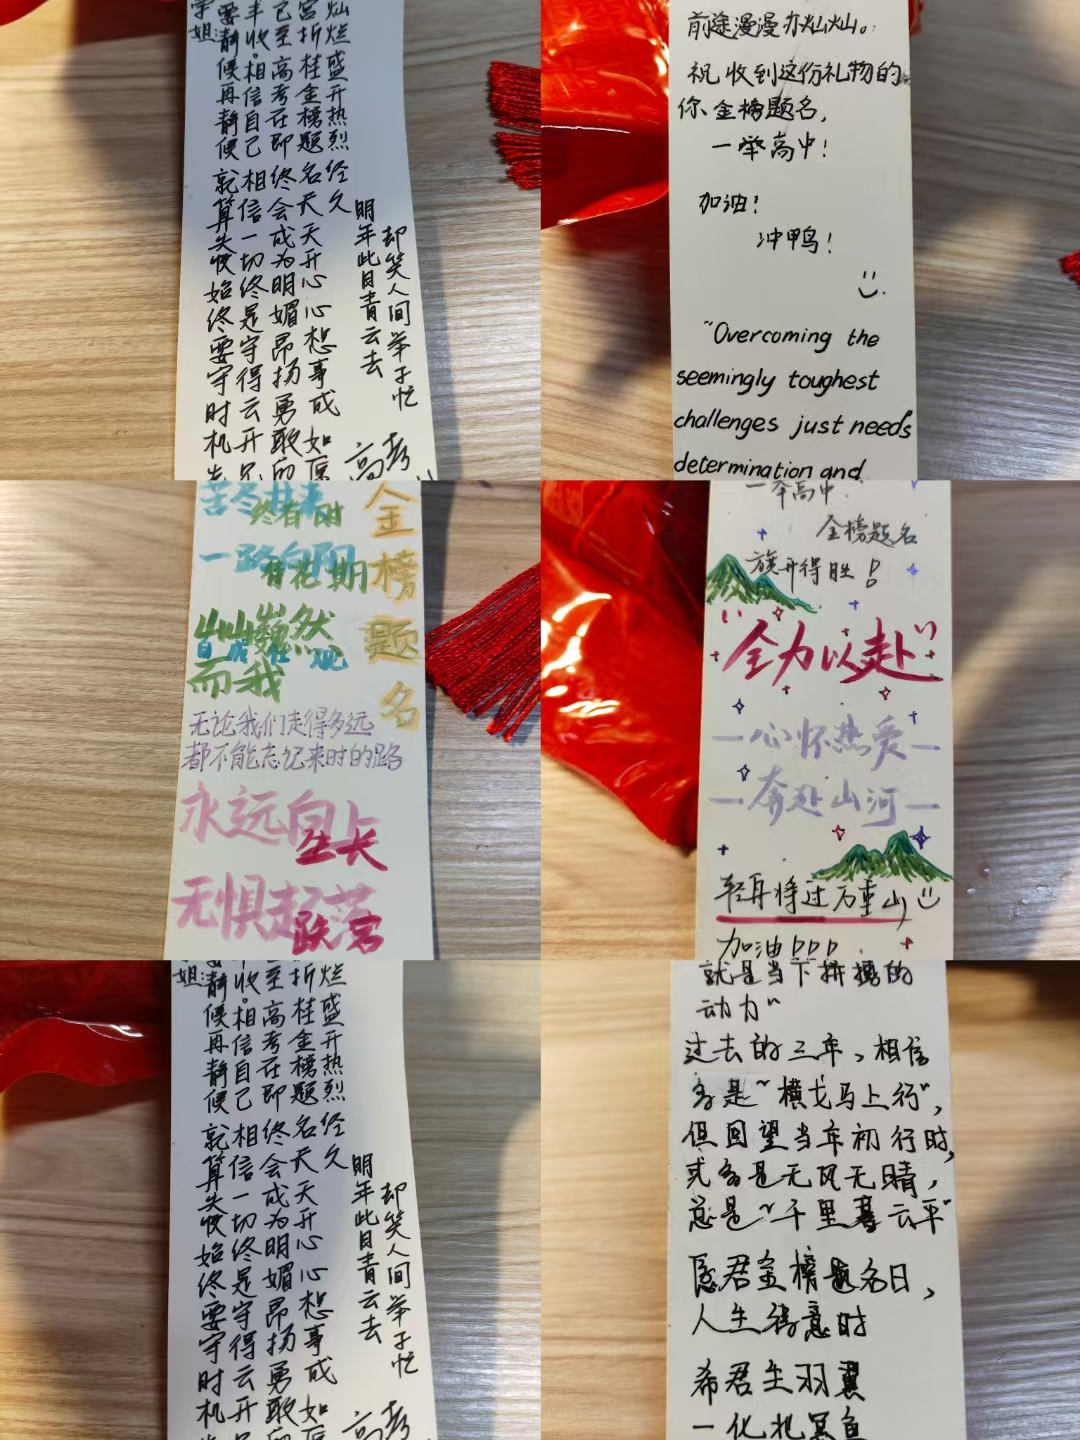 明年此日青云去
却笑人间举子忙
灿烂盛开热烈经久
宫折桂金榜题名天天开心心想事成如愿
己至高考在即终会成为明媚昂扬勇敢的
丰收。相信自己相信一切终是守得云开见
要静候再静候就算失败始终要守时机
学姐:
高考
前途漫漫亦灿灿。
祝收到这份礼物的
你金榜题名,
一举高中!
加油!
冲鸭!
"Overcoming the
seemingly toughest
challenges just needs
determination and
金榜题名
终有时
一路向阳
有花期
山山巍然
自成壮观
而我
无论我们走得多远
都不能忘记来时的路
永远向上
生长
无惧起落
跌宕
一举高中
金榜题名
旗开得胜!
"全力以赴"
—心怀热爱—
—奔赴山河—
轻舟将过万重山
加油!!!
明年此日青云去
却笑人间举子忙
烂盛开热烈经久
折桂金榜题名天天开心心想事成如愿
至高考在即终会成为明媚昂扬勇敢的
收。相信自己相信一切终是守得云开
静候再静候就算失败始终要守时机
姐:
高考
就是当下拼搏的
动力"
过去的三年,相信
多是"横戈马上行",
但回望当年初行时,
或多是无风无晴,
总是"千里暮云平"
愿君金榜题名日,
人生得意时
希君生羽翼
一化北冥鱼